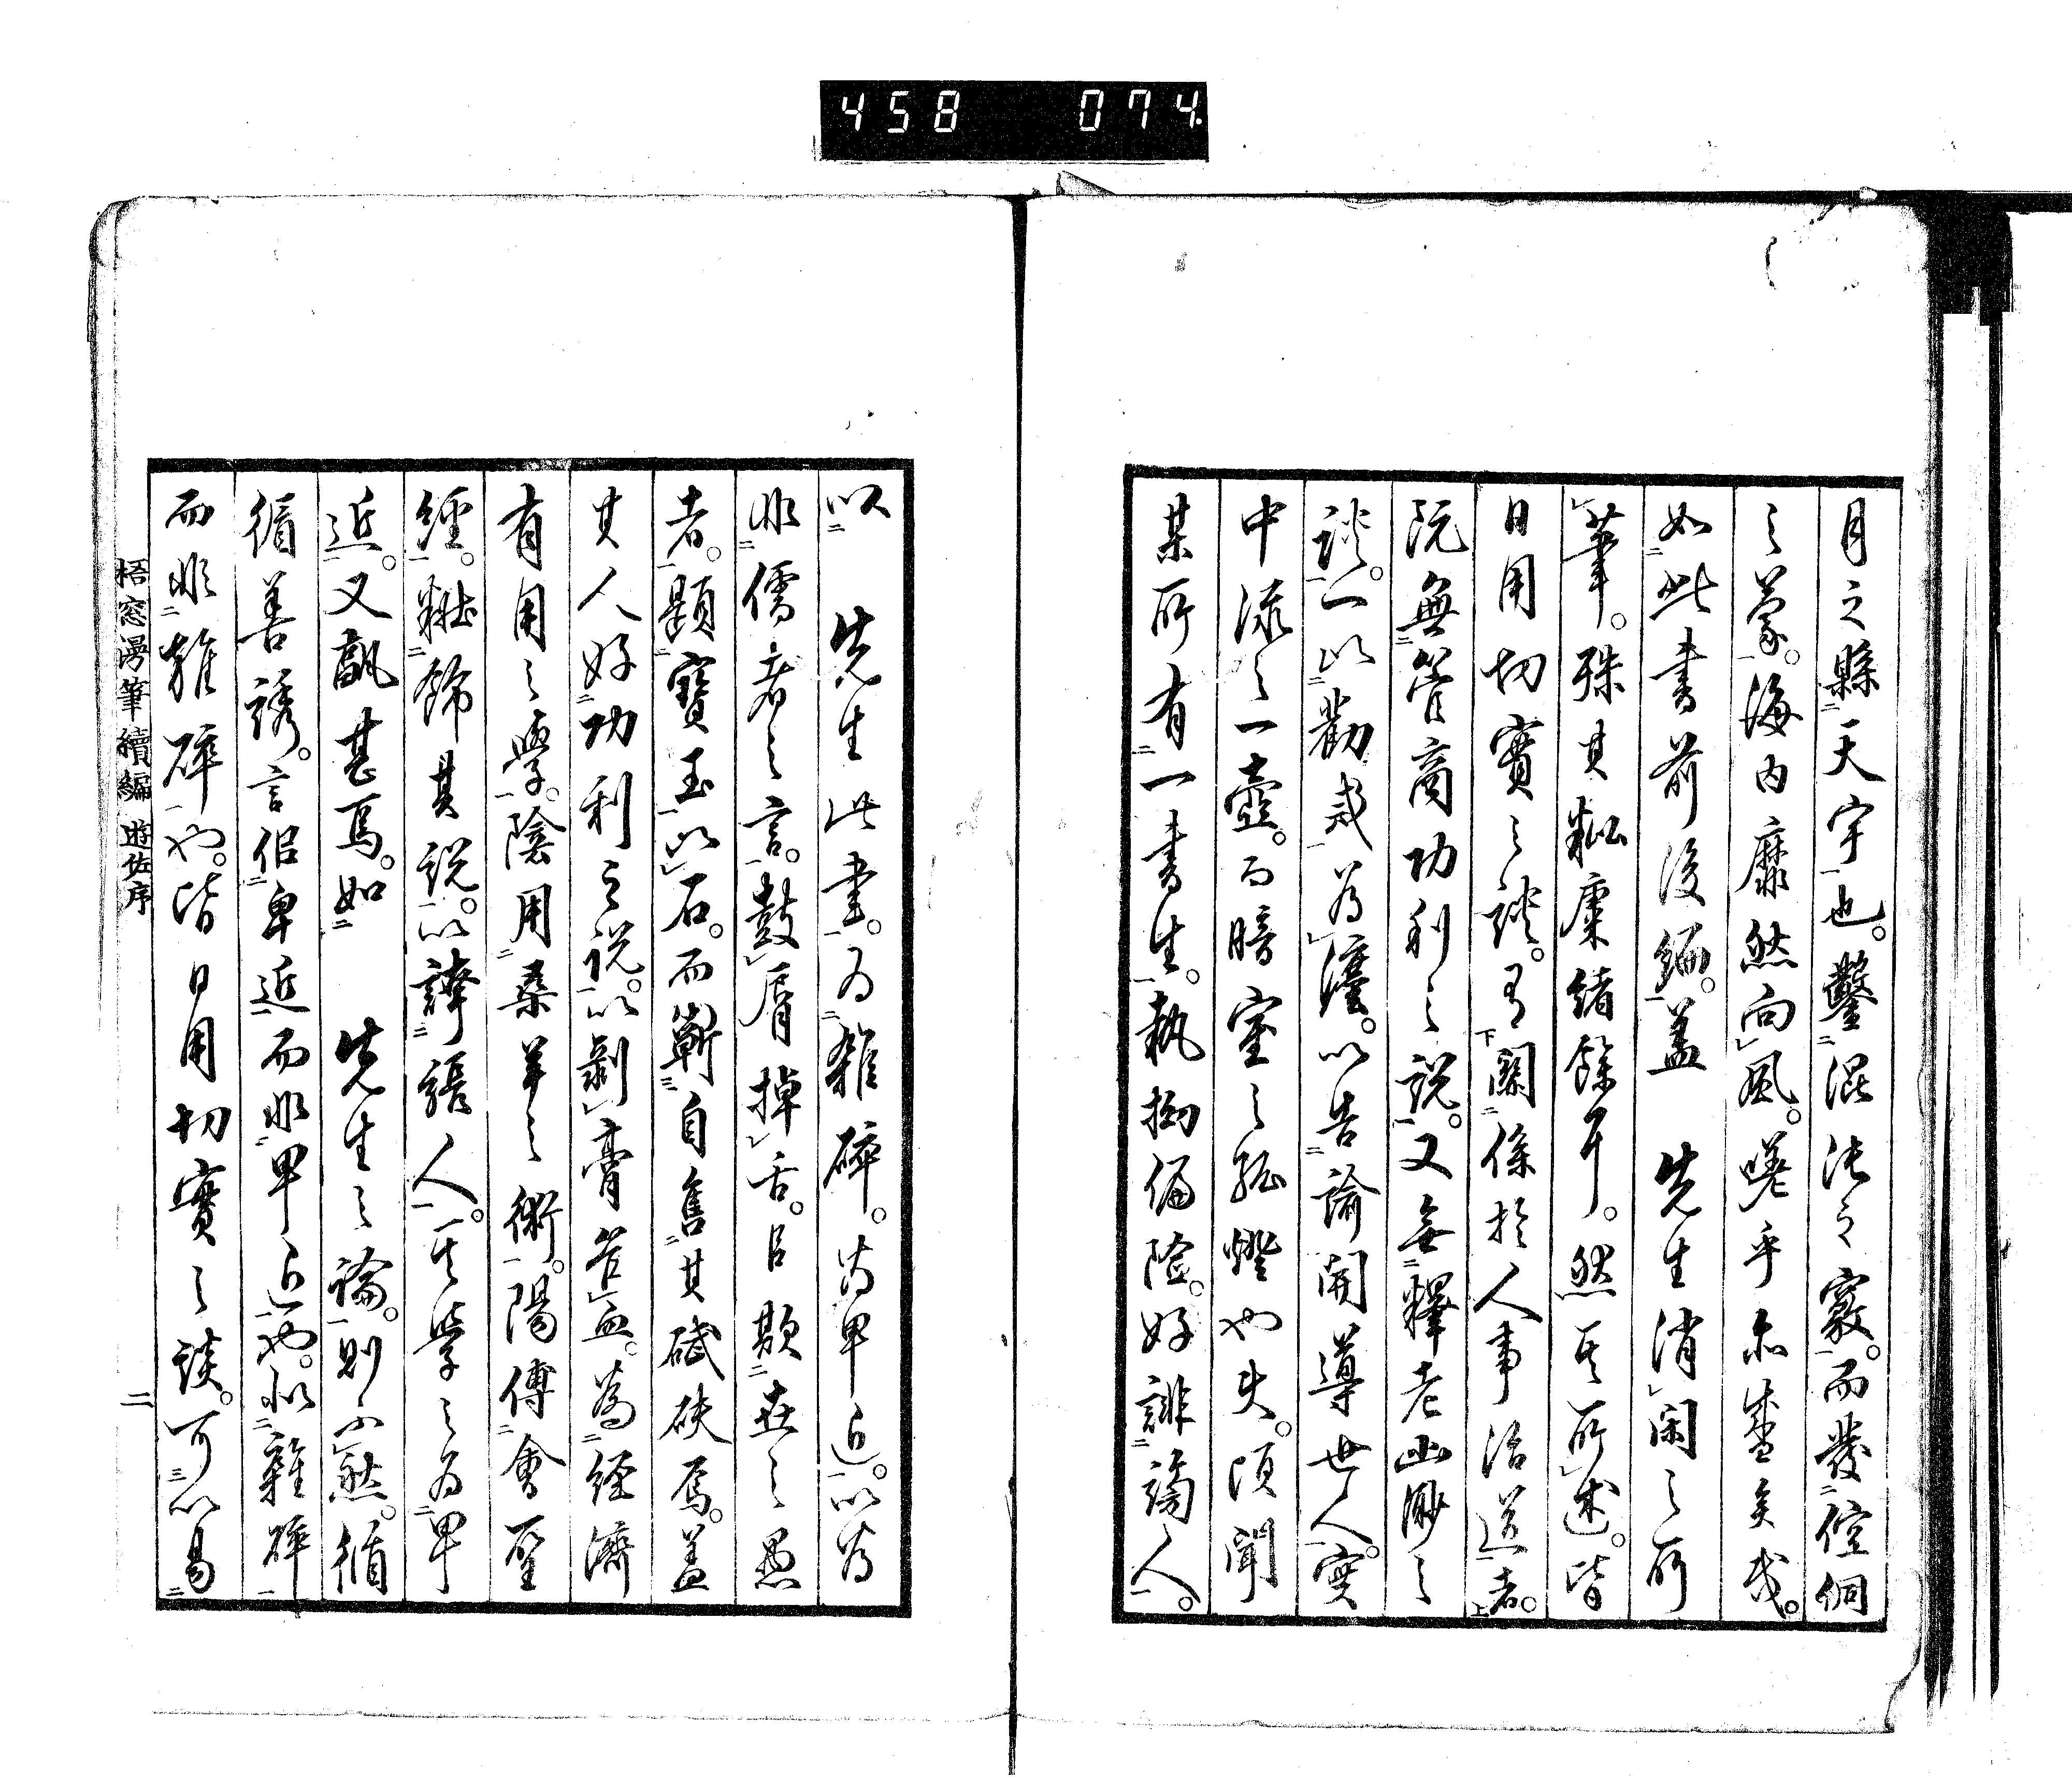 458 074
月之縣天宇也。鑿混沌之竅。而發倥侗
之蒙。海内靡然向風。嗟乎亦盛矣哉。
如此書前後編。蓋 先生消閑之所
筆。殊其粃糠緒餘耳。然其所述。皆
日用切實之談。有關係於人事治道者。
既無管商功利之說。又無釋老幽渺之
談。一以勸戒為灋。以告諭開導世人。實
中流之一壺。而暗室之孤燈也夫。頃聞
某所有一書生。執拗偏險。好誹謗人。
以 先生此書。為雜碎。為卑近。以為
非儒者之言。鼓脣掉舌。以欺世之愚
者。題寶玉以石。而蘄自售其碔砆焉。蓋
其人好功利之說。以剥膏笞血。為經濟
有用之學。陰用桑羊之術。陽傅會聖
經。粧飾其說。以譁張人。其學之為卑
近。又酷甚焉。如 先生之論。則不然。循
循善誘。言似卑近而非卑近也。似雜碎
而非雜碎也。皆日用切實之談。可以易
梧窓漫筆續編 遊佐序
二